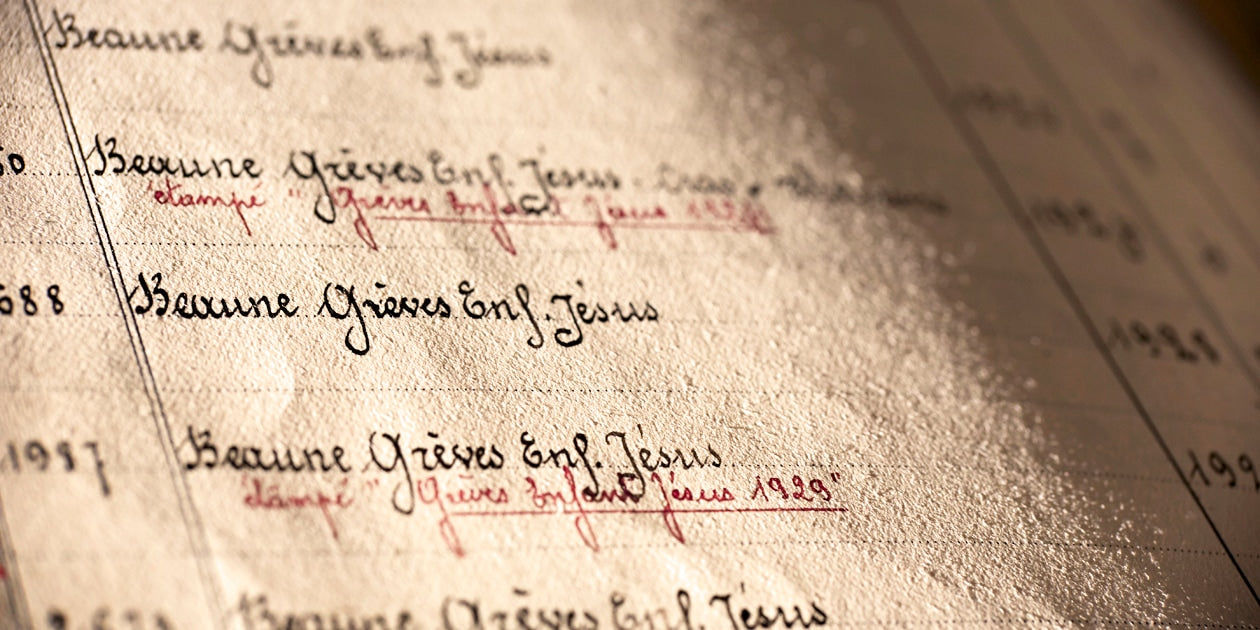 Beaune Grèves Enf. Jésus
50 Beaune Grèves Enf. Jésus
étampé " Grèves Enfant Jésus
688 Beaune Grèves Enf. Jésus 1928
1987 Beaune Grèves Enf. Jésus 192
étampé " Grèves Enfant Jésus 1929"
Beaune Grèves Enf. Jésus